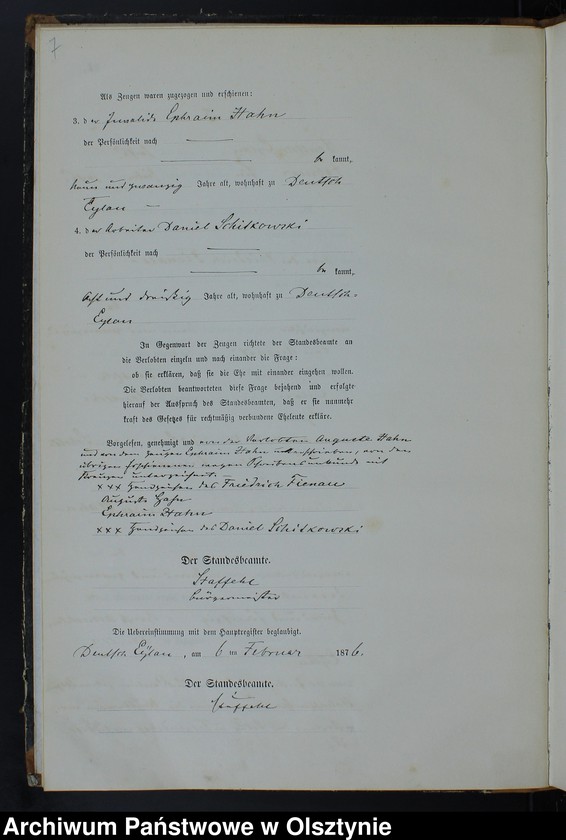 7
Als Zeugen waren zugezogen und erschienen:
3. der Invalide Ephraim Hahn
der Persönlichkeit nach
be kannt,
neun und zwanzig Jahre alt, wohnhaft zu Deutsch
Eylau
4. der Arbeiter Daniel Schitkowski
der Persönlichkeit nach
be kannt,
acht und dreißig Jahre alt, wohnhaft zu Deutsch-
Eylau
In Gegenwart der Zeugen richtete der Standesbeamte an
die Verlobten einzeln und nach einander die Frage:
ob sie erklären, daß sie die Ehe mit einander eingehen wollen.
Die Verlobten beantworteten diese Frage bejahend und erfolgte
hierauf der Ausspruch des Standesbeamten, daß er sie nunmehr
kraft des Gesetzes für rechtmäßig verbundene Eheleute erkläre.
Vorgelesen, genehmigt und von der Verlobten Auguste Hahn
und von dem Zeugen Ephraim Hahn unterschrieben, von den
übrigen Erschienenen wegen Schreibensunkunde mit
Kreuzen unterzeichnet.
××× Handzeichen des Friedrich Fienau
Auguste Hahn
Ephraim Hahn
××× Handzeichen des Daniel Schitkowski
Der Standesbeamte.
Staffehl
Bürgermeister
Die Uebereinstimmung mit dem Hauptregister beglaubigt.
Deutsch Eylau, am 6 ten Februar 1876.
Der Standesbeamte.
Staffehl
Archiwum Państwowe w Olsztynie